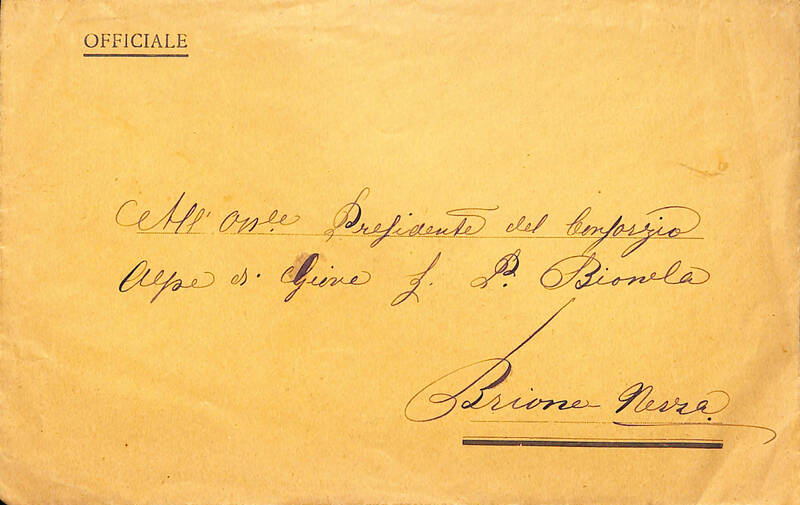 OFFICIALE
All' On.le Presidente del Consorzio
Alpe di Giove S. P. Bionda
Brione Verza.